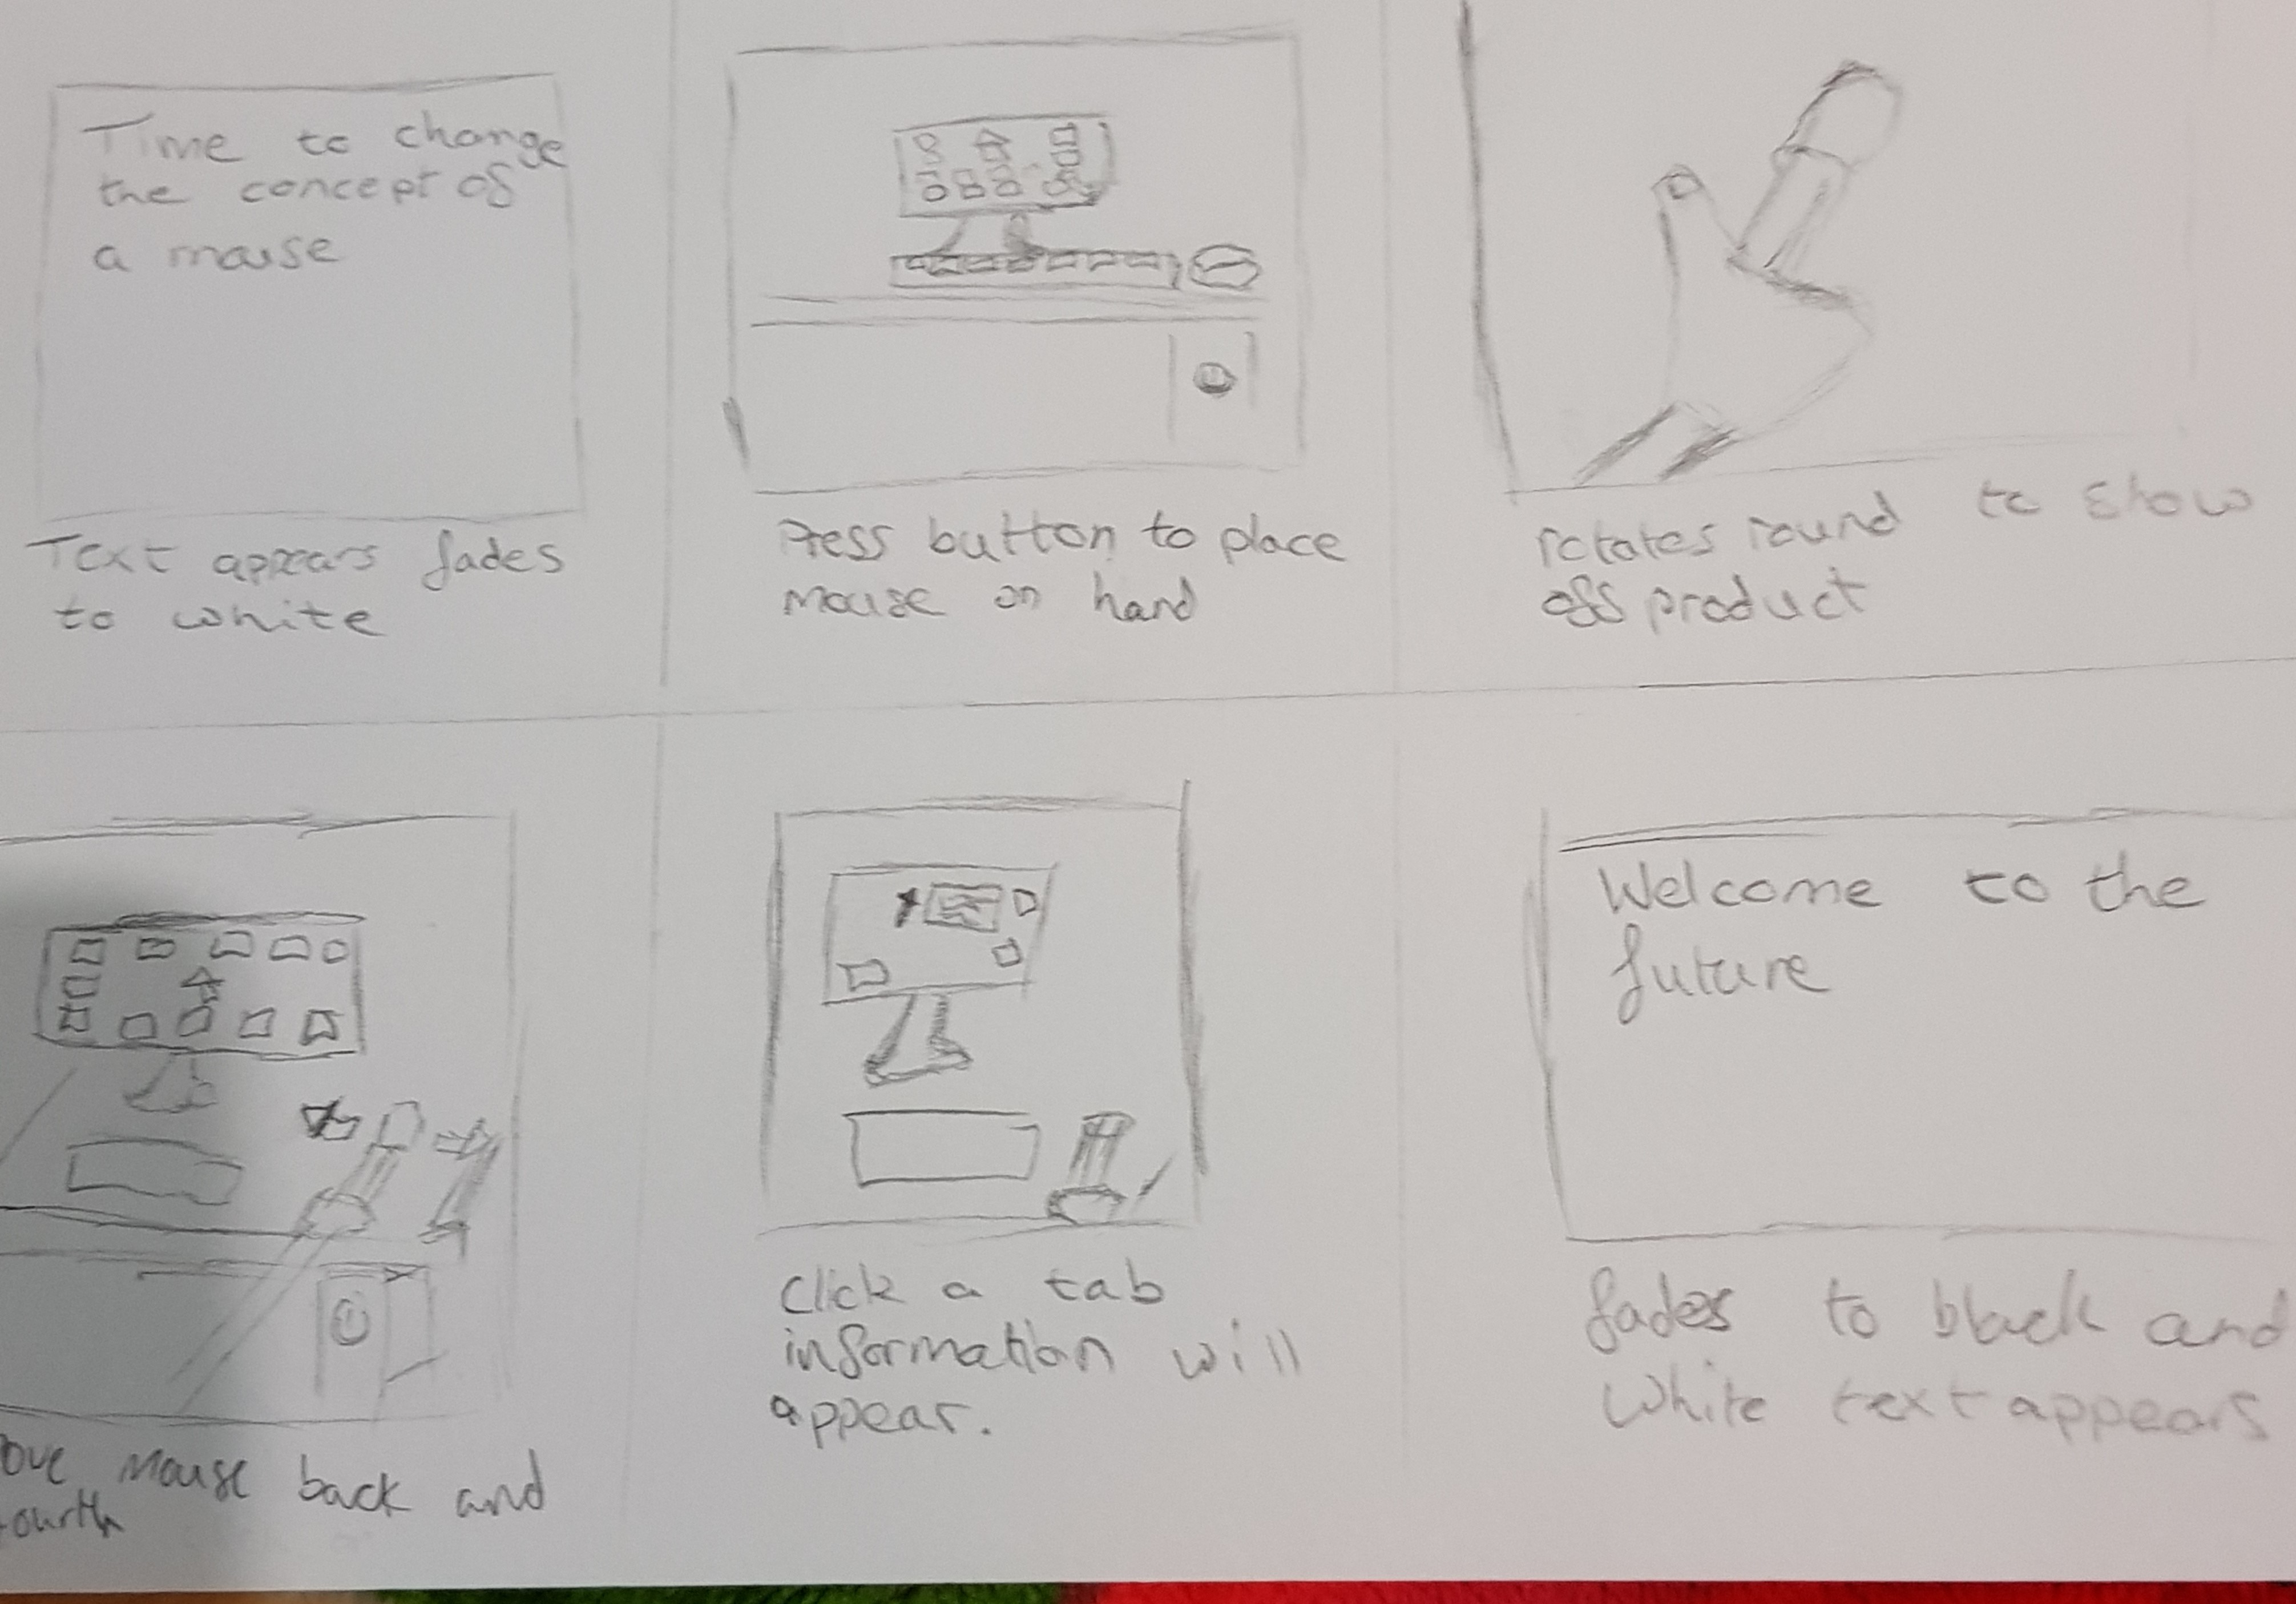 Time to change
the concept of
a mouse
Text appears fades
to white
Press button to place
mouse on hand
rotates round to show
off product
ove mouse back and
ourth
Welcome to the
future
Click a tab
information will
appear.
fades to black and
White text appears